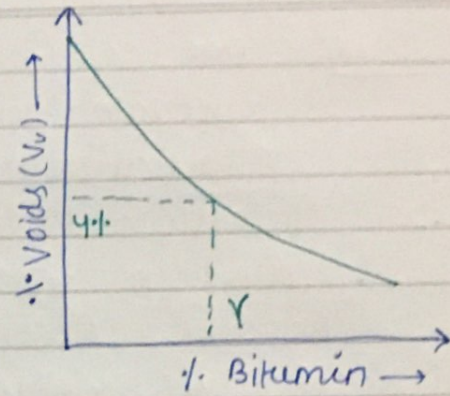 % Voids (Vv) →
4%
γ
% Bitumin →